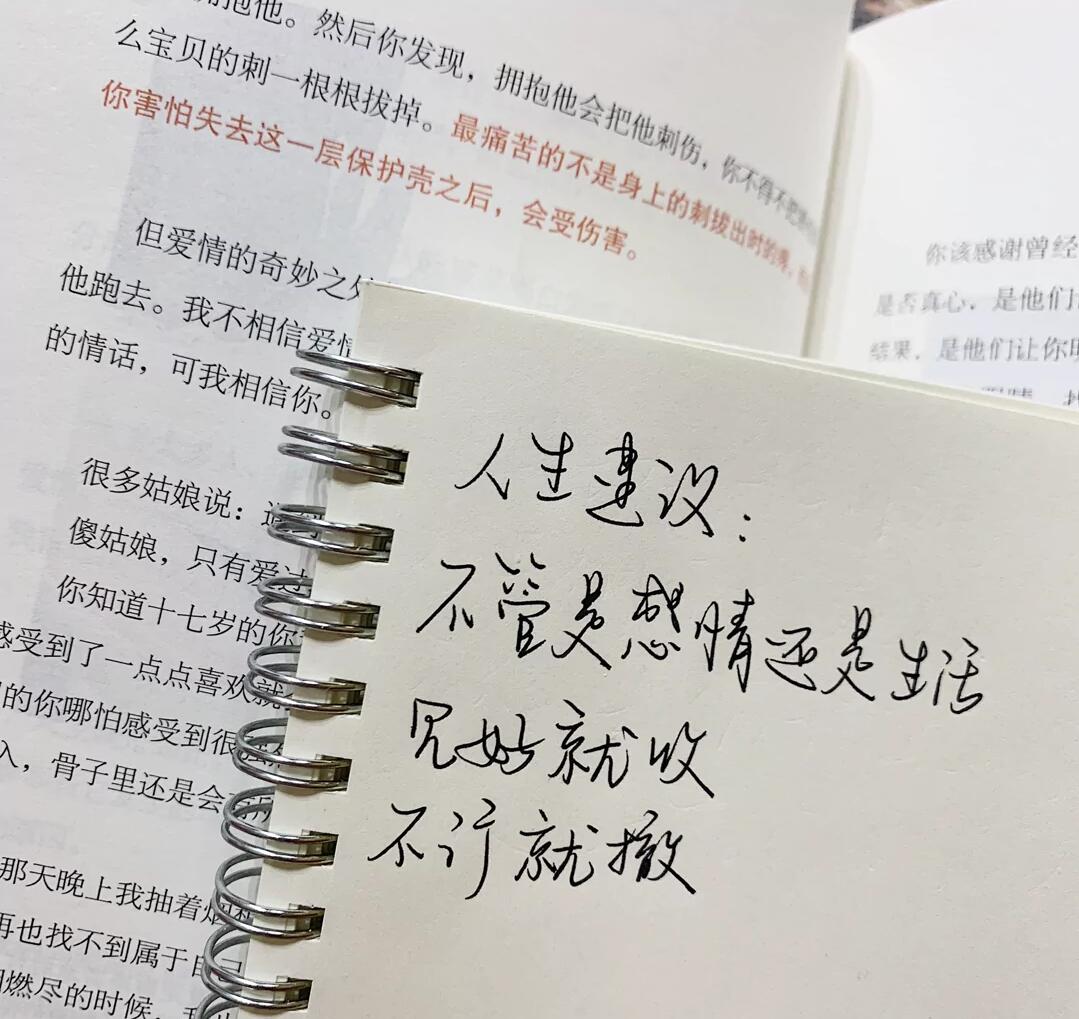 拥抱他。然后你发现，拥抱他会把他刺伤，你不得不把
么宝贝的刺一根根拔掉。最痛苦的不是身上的刺拔出时的
你害怕失去这一层保护壳之后，会受伤害。
但爱情的奇妙之处
他跑去。我不相信爱情
的情话，可我相信你。
很多姑娘说：
傻姑娘，只有爱过
你知道十七岁的你
感受到了一点点喜欢就
的你哪怕感受到很
入，骨子里还是会
那天晚上我抽着烟
再也找不到属于自己
燃尽的时候，我
你该感谢曾经
是否真心，是他们
结果，是他们让你
人生建议：
不管是感情还是生活
见好就收
不行就撤